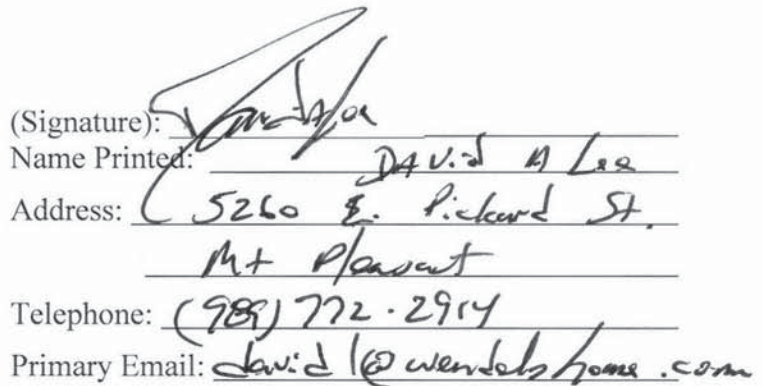 (Signature):
Name Printed: David A Lee
Address: 5260 E. Pickard St.
Mt Pleasant
Telephone: (989) 772-2914
Primary Email: davidl@wendelshome.com